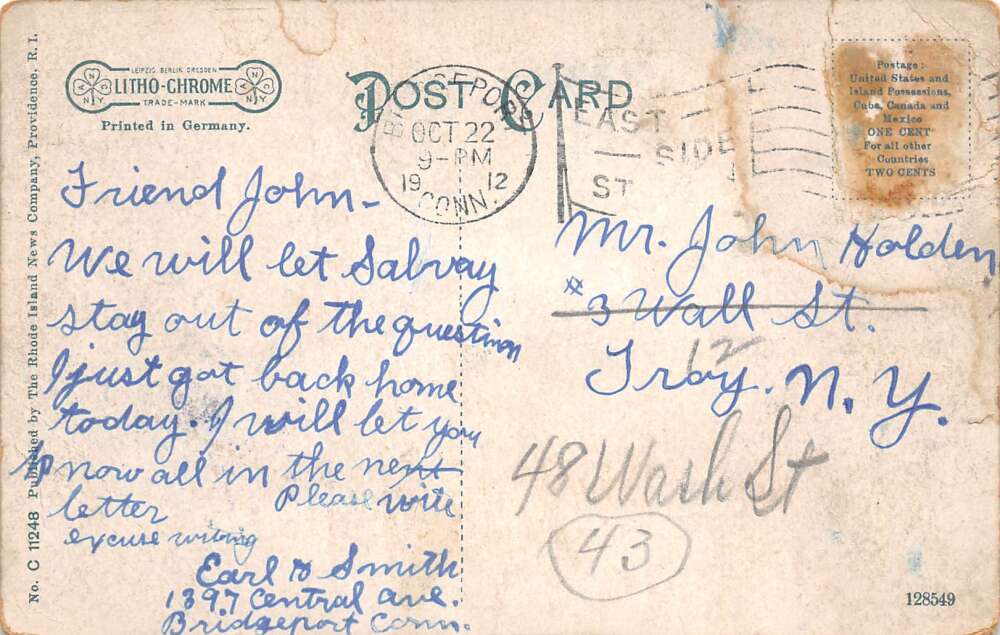 No. C 11248 Published by The Rhode Island News Company, Providence, R. I.
LEIPZIG BERLIN DRESDEN
LITHO-CHROME
TRADE-MARK
Printed in Germany.
POST CARD
BRIDGEPORT
OCT 22
9-PM
1912
CONN.
EAST
SIDE
ST
Postage:
United States and
Island Possessions,
Cuba, Canada and
Mexico
ONE CENT
For all other
Countries
TWO CENTS
Friend John-
We will let Salvay
stay out of the question
I just got back home
today. I will let you
know all in the next
letter Please write
excuse writing
Earl H Smith
1397 Central ave.
Bridgeport Conn.
Mr. John Holden
#3 Wall St.
Troy. N. Y.
12
48 Wash St
43
128549